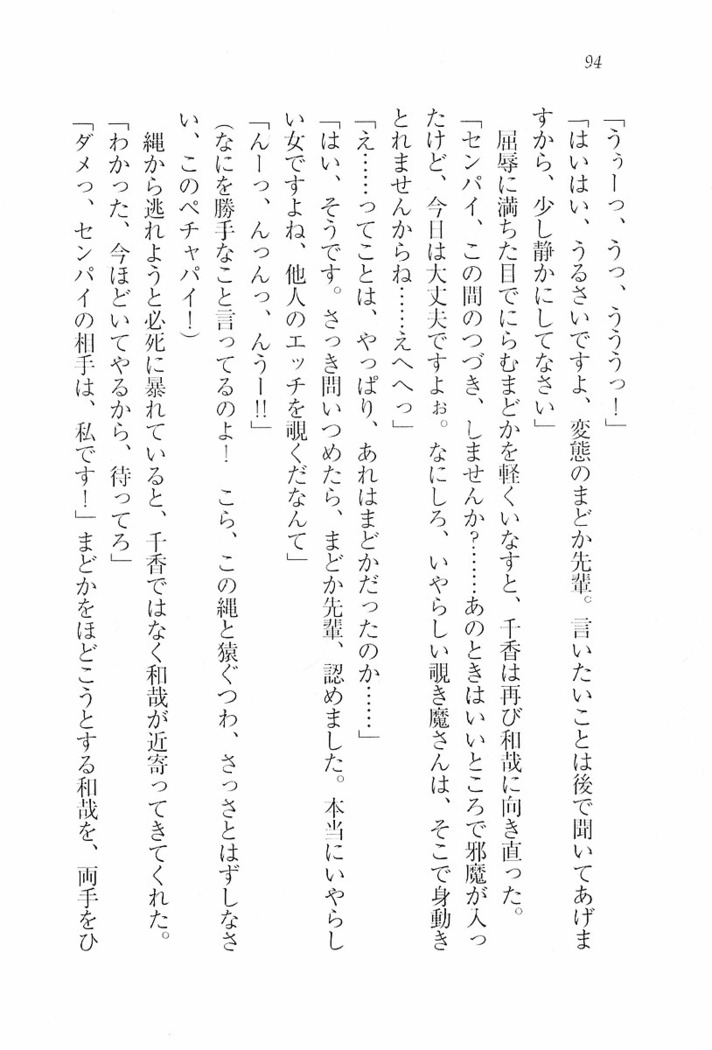 94
「うぅーっ、うっ、うううっ！」
「はいはい、うるさいですよ、変態のまどか先輩。言いたいことは後で聞いてあげま
すから、少し静かにしてなさい」
　屈辱に満ちた目でにらむまどかを軽くいなすと、千香は再び和哉に向き直った。
「センパイ、この間のつづき、しませんか？………あのときはいいところで邪魔が入っ
たけど、今日は大丈夫ですよぉ。なにしろ、いやらしい覗き魔さんは、そこで身動き
とれませんからね………えへへっ」
「え……ってことは、やっぱり、あれはまどかだったのか……」
「はい、そうです。さっき問いつめたら、まどか先輩、認めました。本当にいやらし
い女ですよね、他人のエッチを覗くだなんて」
「んーっ、んっんっ、んうー!!」
（なにを勝手なこと言ってるのよ！　こら、この縄と猿ぐつわ、さっさとはずしなさ
い、このペチャパイ！）
　縄から逃れようと必死に暴れていると、千香ではなく和哉が近寄ってきてくれた。
「わかった、今ほどいてやるから、待ってろ」
「ダメっ、センパイの相手は、私です！」まどかをほどこうとする和哉を、両手をひ